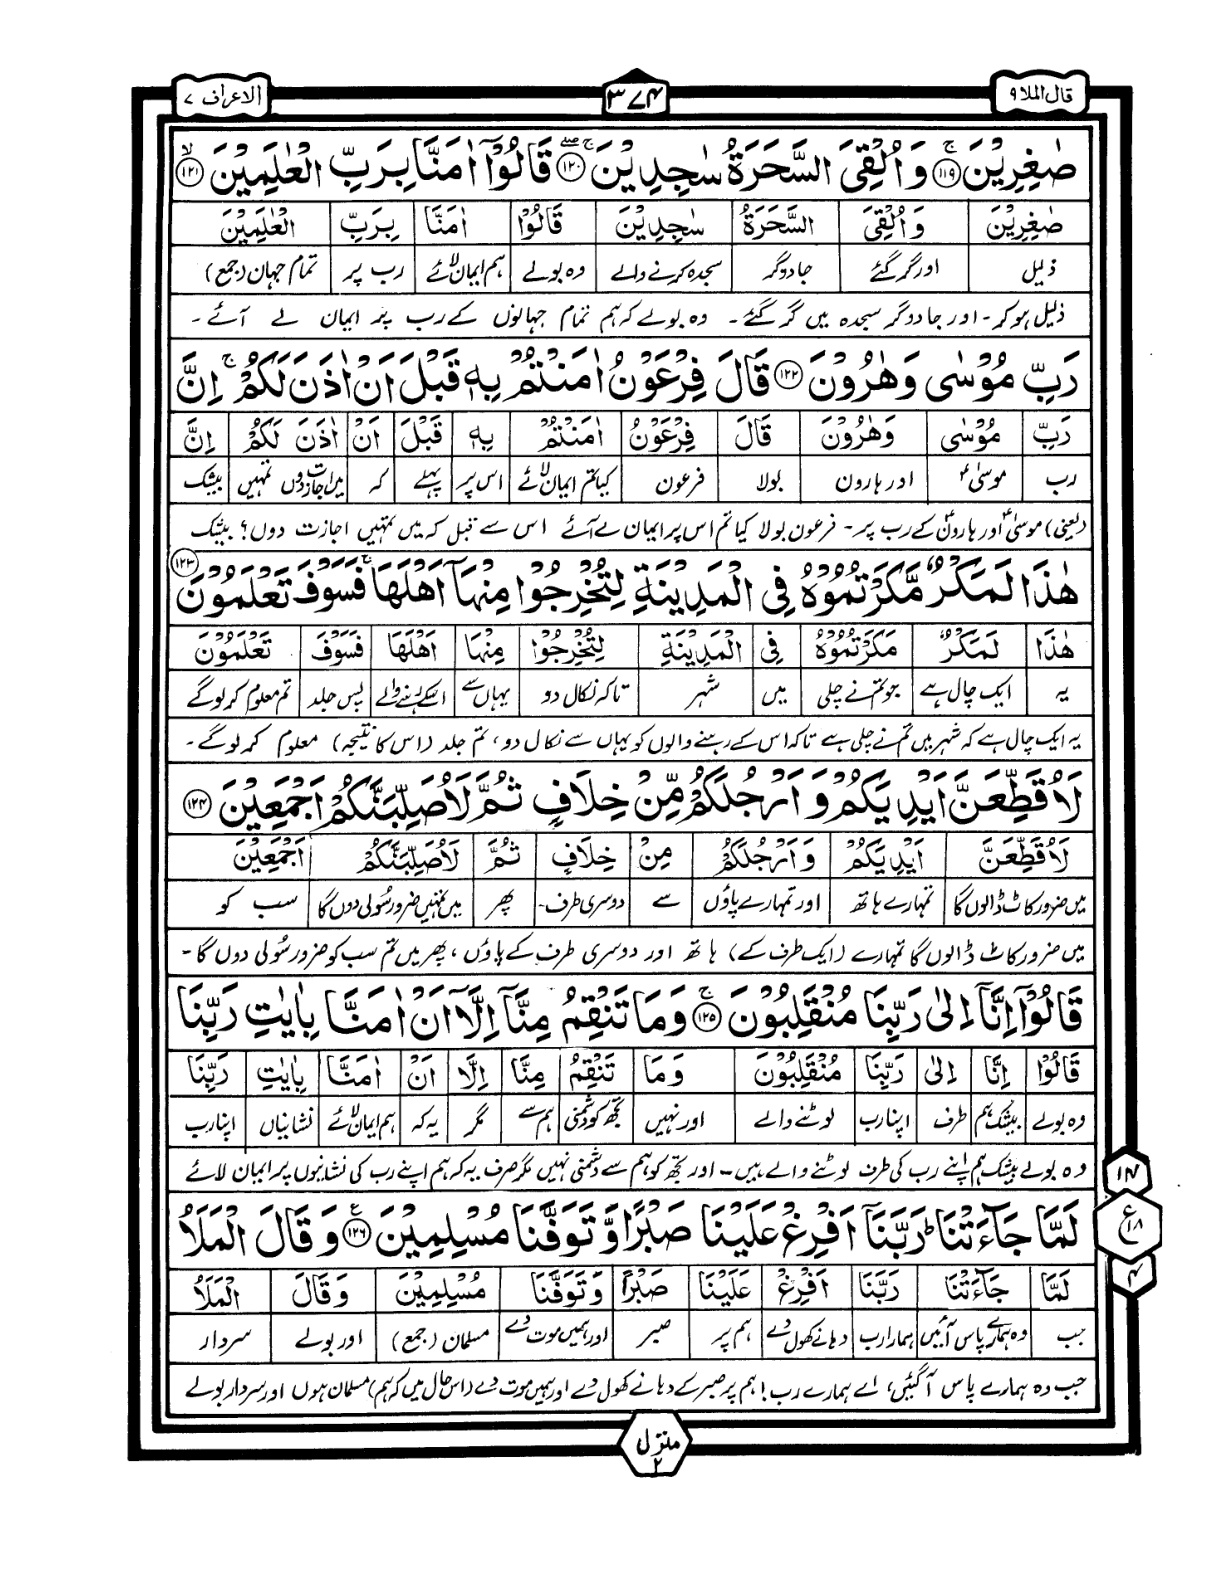 قال الملا ۹
۳۷۴
الاعراف ۷
صٰغِرِيْنَ ۚ﴿۱۱۹﴾ وَاُلْقِيَ السَّحَرَةُ سٰجِدِيْنَ ۚۖ﴿۱۲۰﴾ قَالُوْۤا اٰمَنَّا بِرَبِّ الْعٰلَمِيْنَ ۙ﴿۱۲۱﴾
صٰغِرِيْنَ وَاُلْقِيَ السَّحَرَةُ سٰجِدِيْنَ قَالُوْا اٰمَنَّا بِرَبِّ الْعٰلَمِيْنَ
ذلیل اور گر گئے جادوگر سجدہ کرنے والے وہ بولے ہم ایمان لائے رب پر تمام جہان (جمع)
ذلیل ہو کر۔ اور جادوگر سجدہ میں گر گئے۔ وہ بولے کہ ہم تمام جہانوں کے رب پر ایمان لے آئے۔
رَبِّ مُوْسٰى وَهٰرُوْنَ ﴿۱۲۲﴾ قَالَ فِرْعَوْنُ اٰمَنْتُمْ بِهٖ قَبْلَ اَنْ اٰذَنَ لَكُمْ ۚ اِنَّ
رَبِّ مُوْسٰى وَهٰرُوْنَ قَالَ فِرْعَوْنُ اٰمَنْتُمْ بِهٖ قَبْلَ اَنْ اٰذَنَ لَكُمْ اِنَّ
رب موسیٰؑ اور ہارون بولا فرعون کیا تم ایمان لائے اس پر پہلے کہ میں اجازت دوں تمہیں بیشک
(یعنی) موسیٰؑ اور ہارونؑ کے رب پر۔ فرعون بولا کیا تم اس پر ایمان لے آئے اس سے قبل کہ میں تمہیں اجازت دوں؟ بیشک
هٰذَا لَمَكْرٌ مَّكَرْتُمُوْهُ فِي الْمَدِيْنَةِ لِتُخْرِجُوْا مِنْهَاۤ اَهْلَهَا ۚ فَسَوْفَ تَعْلَمُوْنَ ﴿۱۲۳﴾
هٰذَا لَمَكْرٌ مَكَرْتُمُوْهُ فِي الْمَدِيْنَةِ لِتُخْرِجُوْا مِنْهَا اَهْلَهَا فَسَوْفَ تَعْلَمُوْنَ
یہ ایک چال ہے جو تم نے چلی میں شہر تاکہ نکال دو یہاں سے اسکے رہنے والے پس جلد تم معلوم کر لوگے
یہ ایک چال ہے کہ شہر میں تم نے چلی ہے تاکہ اس کے رہنے والوں کو یہاں سے نکال دو، تم جلد (اس کا نتیجہ) معلوم کر لو گے۔
لَاُقَطِّعَنَّ اَيْدِيَكُمْ وَاَرْجُلَكُمْ مِّنْ خِلَافٍ ثُمَّ لَاُصَلِّبَنَّكُمْ اَجْمَعِيْنَ ﴿۱۲۴﴾
لَاُقَطِّعَنَّ اَيْدِيَكُمْ وَاَرْجُلَكُمْ مِنْ خِلَافٍ ثُمَّ لَاُصَلِّبَنَّكُمْ اَجْمَعِيْنَ
میں ضرور کاٹ ڈالوں گا تمہارے ہاتھ اور تمہارے پاؤں سے دوسری طرف۔ پھر میں تمہیں ضرور سُولی دوں گا سب کو
میں ضرور کاٹ ڈالوں گا تمہارے (ایک طرف کے) ہاتھ اور دوسری طرف کے پاؤں، پھر میں تم سب کو ضرور سُولی دوں گا۔
قَالُوْۤا اِنَّاۤ اِلٰى رَبِّنَا مُنْقَلِبُوْنَ ۚ﴿۱۲۵﴾ وَمَا تَنْقِمُ مِنَّاۤ اِلَّاۤ اَنْ اٰمَنَّا بِاٰيٰتِ رَبِّنَا
قَالُوْا اِنَّا اِلٰى رَبِّنَا مُنْقَلِبُوْنَ وَمَا تَنْقِمُ مِنَّا اِلَّا اَنْ اٰمَنَّا بِاٰيٰتِ رَبِّنَا
وہ بولے بیشک ہم طرف اپنا رب لوٹنے والے اور نہیں تجھ کو دشمنی ہم سے مگر یہ کہ ہم ایمان لائے نشانیاں اپنا رب
وہ بولے بیشک ہم اپنے رب کی طرف لوٹنے والے ہیں۔ اور تجھ کو ہم سے دشمنی نہیں مگر صرف یہ کہ ہم اپنے رب کی نشانیوں پر ایمان لائے
۱۴
لَمَّا جَآءَتْنَا ؕ رَبَّنَاۤ اَفْرِغْ عَلَيْنَا صَبْرًا وَّتَوَفَّنَا مُسْلِمِيْنَ ﴿۱۲۶﴾ وَقَالَ الْمَلَاُ
ع
۱۸
لَمَّا جَآءَتْنَا رَبَّنَا اَفْرِغْ عَلَيْنَا صَبْرًا وَتَوَفَّنَا مُسْلِمِيْنَ وَقَالَ الْمَلَاُ
۴
جب وہ ہمارے پاس آئیں ہمارا رب دہانے کھول دے ہم پر صبر اور ہمیں موت دے مسلمان (جمع) اور بولے سردار
جب وہ ہمارے پاس آگئیں، اے ہمارے رب! ہم پر صبر کے دہانے کھول دے اور ہمیں موت دے (اس حال میں کہ ہم) مسلمان ہوں اور سردار بولے
منزل ۲